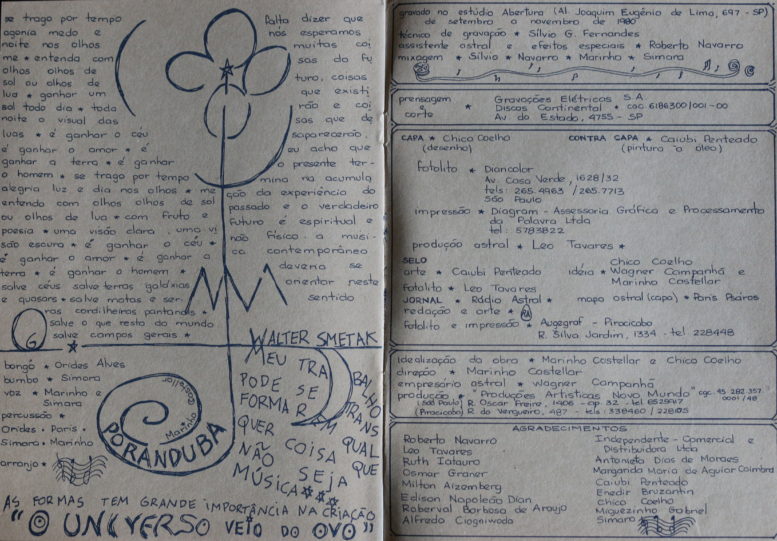 se trago por tempo
agonia medo e
noite nos olhos
me ★ entenda com
olhos olhos de
sol ou olhos de
lua ★ ganhar um
sol todo dia ★ toda
noite o visual das
luas ★ é ganhar o céu
é ganhar o amor ★ é
ganhar a terra ★ é ganhar
o homem ★ se trago por tempo
alegria luz e dia nos olhos ★ me
entenda com olhos olhos de sol
ou olhos de lua ★ com fruto e
poesia ★ uma visão clara, uma vi
são escura ★ é ganhar o céu ★
é ganhar o amor ★ é ganhar a
terra ★ é ganhar o homem ★
salve céus salve terras galáxias
e quasars ★ salve matas e ser
ras cordilheiras pantanais ★
salve o que resta do mundo
salve campos gerais ★
falta dizer que
nós esperamos
muitas coi
sas do fu
turo, coisas
que existi
rão e coi
sas que de
saparecerão.
eu acho que
o presente ter-
mina na acumula
ção da experiência do
passado e o verdadeiro
futuro é espiritual e
não físico. a musi-
ca contemporânea
deveria se
orientar neste
sentido
WALTER SMETAK
bongô ★ Orides Alves
bumbo ★ Simara
voz ★ Marinho e
Simara
percussão ★
Orides ★ Paris ★
Simara ★ Marinho
arranjo ★
Marinho Castellar
PORANDUBA
MEU TRABALHO
PODE SE TRANS
FORMAR EM QUAL
QUER COISA QUE
NÃO SEJA
MÚSICA ★★★
AS FORMAS TEM GRANDE IMPORTÂNCIA NA CRIAÇÃO
"O UNIVERSO VEIO DO OVO"
gravado no estúdio Abertura (Al. Joaquim Eugênio de Lima, 697 - SP)
de setembro a novembro de 1980
técnico de gravação ★ Sílvio G. Fernandes
assistente astral e efeitos especiais ★ Roberto Navarro
mixagem ★ Sílvio ★ Navarro ★ Marinho ★ Simara
prensagem e corte ★ Gravações Elétricas S.A
Discos Continental ★ CGC 6186300/001-00
Av do Estado, 4755 - SP
CAPA ★ Chico Coelho CONTRA CAPA ★ Caiubi Penteado
(desenho) (pintura a óleo)
fotolito ★ Diancolor
Av. Casa Verde, 1628/32
tels: 265.4963 / 265.7713
São Paulo
impressão ★ Diagram - Assessoria Gráfica e Processamento
da Palavra Ltda
tel: 5783822
produção astral ★ Leo Tavares ★
SELO
arte ★ Caiubi Penteado idéia ★ Chico Coelho
Wagner Campanhã e
fotolito ★ Leo Tavares Marinho Castellar
JORNAL ★ Rádio Astral ★ mapa astral (capa) ★ Paris Psáros
redação e arte ★
fotolito e impressão ★ Augegraf - Piracicaba
R. Silva Jardim, 1334 - tel 228448
idealização da obra ★ Marinho Castellar e Chico Coelho
direção ★ Marinho Castellar
empresário astral ★ Wagner Campanhã
produção ★ "Produções Artísticas Novo Mundo" cgc 45 282 357 0001/48
(São Paulo) R. Oscar Freire, 1906 - cp 32 - tel 8529767
(Piracicaba) R. do Vergueiro, 487 - tels: 338460 / 22805
AGRADECIMENTOS
Roberto Navarro
Leo Tavares
Ruth Iatauro
Osmar Graner
Milton Aizemberg
Edison Napoleão Dian
Roberval Barbosa de Araujo
Alfredo Ciognivoda
Independente - Comercial e
Distribuidora Ltda
Antonieta Dias de Moraes
Margarida Maria de Aguiar Coimbra
Caiubi Penteado
Enedir Bruzantin
Chico Coelho
Miguezinho Gabriel
Simara